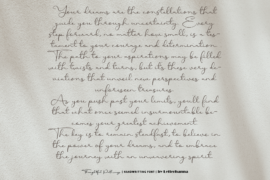 Your dreams are the constellations that
guide you through uncertainty. Every
step forward, no matter how small, is a tes-
tament to your courage and determination.
The path to your aspirations may be filled
with twists and turns, but it's these very de-
viations that unveil new perspectives and
unforeseen treasures.
As you push past your limits, you'll find
that what once seemed insurmountable be-
comes your greatest achievement.
The key is to remain steadfast, to believe in
the power of your dreams, and to embrace
the journey with an unwavering spirit.
HANDWRITTEN FONT